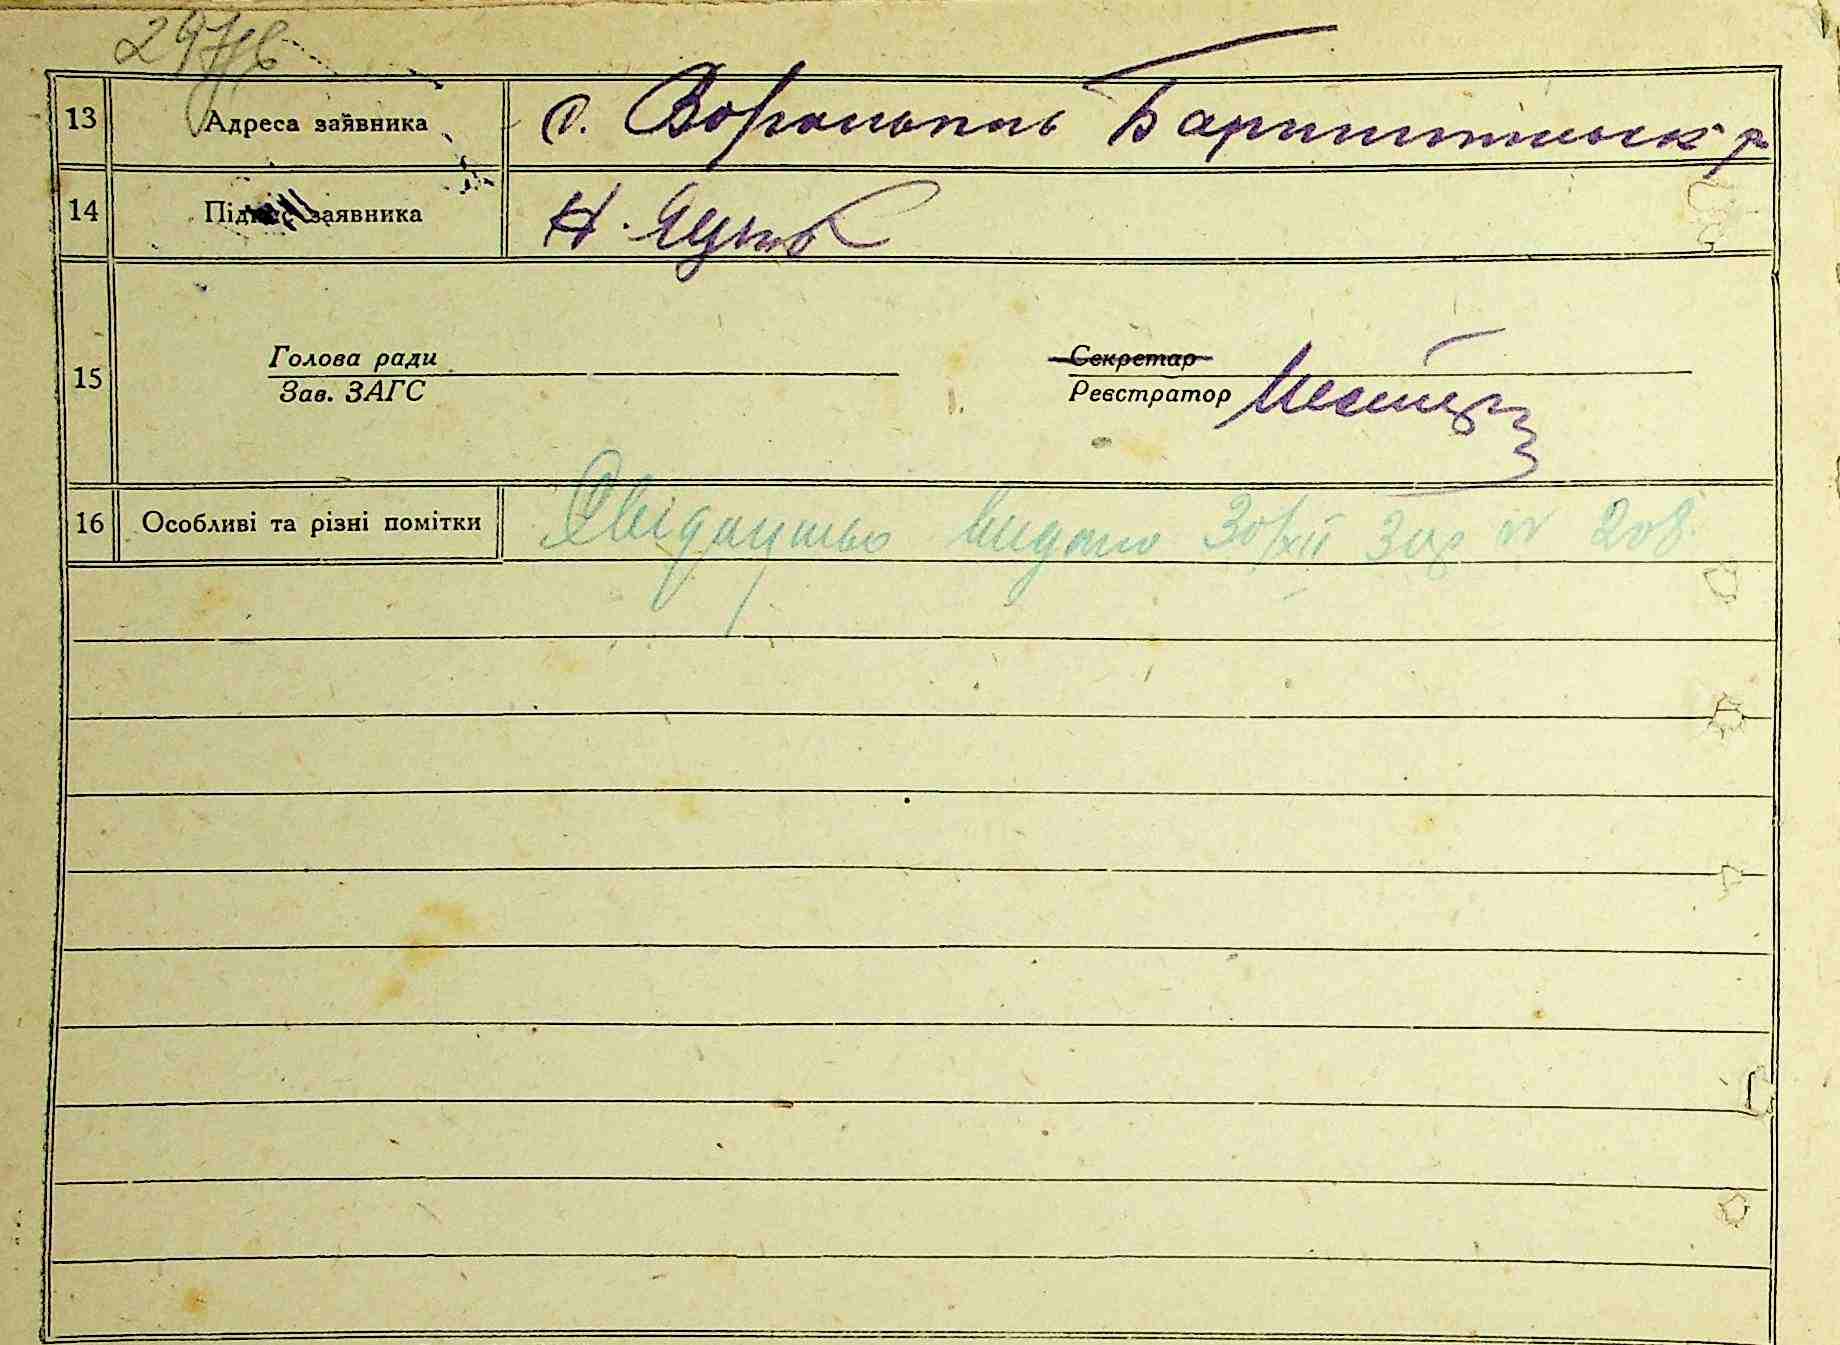 13 Адреса заявника с. Баришівськ р
14 Підпис заявника Н. Яцько
15 Голова ради
Зав. ЗАГС
Секретар
Реєстратор
16 Особливі та різні помітки Свідоцтво видано 30/XII за № 208.